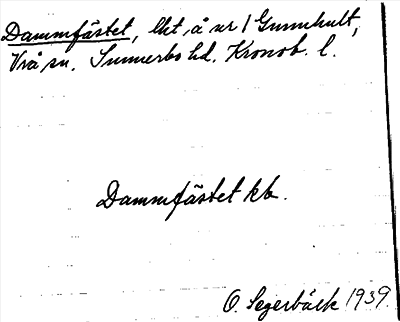 Dammfästet, lht, å nr 1 Gunnhult,
Vrå sn. Sunnerbo hd. Kronob. l.
Dammfästet kb.
O. Segerbäck 1939